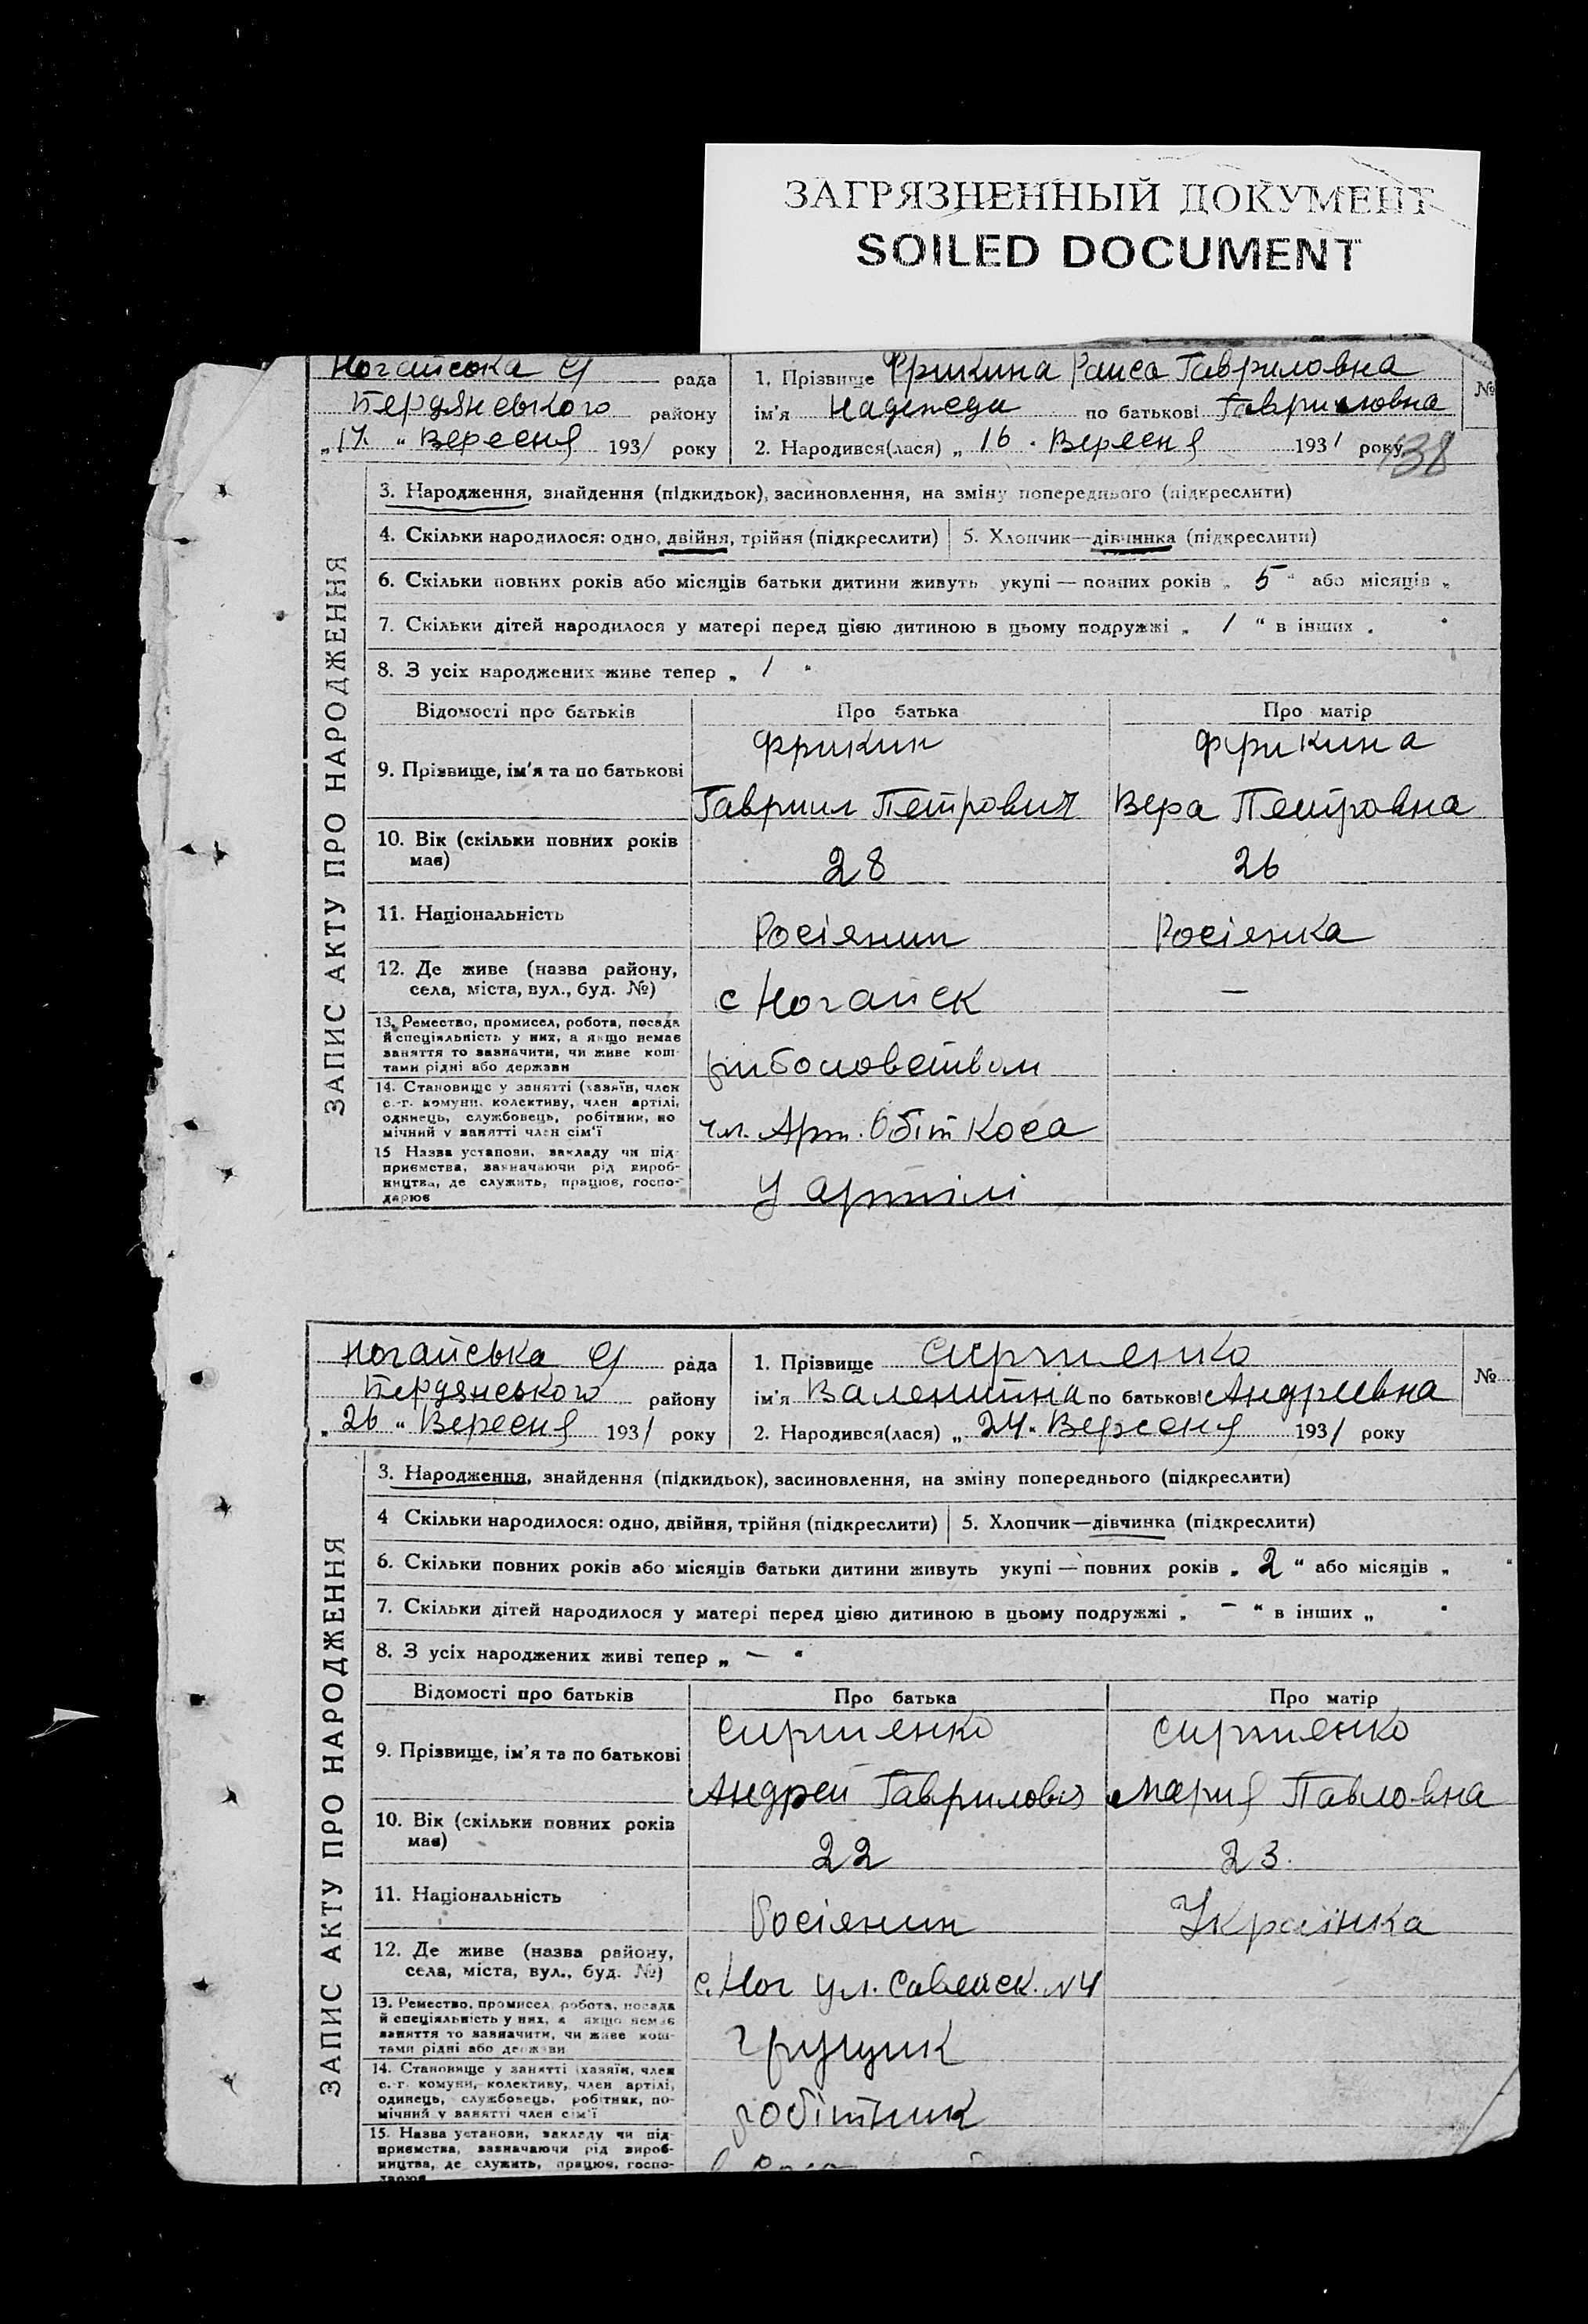 ЗАГРЯЗНЕННЫЙ ДОКУМЕНТ
SOILED DOCUMENT
Ногайська с/ рада
Бердянського району
„17. “ Вересня 1931 року
1. Прізвище Фрикина Раиса Гавриловна
ім'я Надежда по батькові Гавриловна
2. Народився(лася) „ 16 . Вересня 1931 року
№
138
ЗАПИС АКТУ ПРО НАРОДЖЕННЯ
3. Народження, знайдення (підкидьок), засиновлення, на зміну попереднього (підкреслити)
4. Скільки народилося: одно, двійня, трійня (підкреслити) 5. Хлопчик—дівчинка (підкреслити)
6. Скільки повних років або місяців батьки дитини живуть укупі — повних років „ 5 “ або місяців „
7. Скільки дітей народилося у матері перед цією дитиною в цьому подружжі „ 1 “ в інших „ “
8. З усіх народжених живе тепер „ 1 “
Відомості про батьків Про батька Про матір
9. Прізвище, ім'я та по батькові
Фрикин Фрикина
Гавриил Петрович Вера Петровна
10. Вік (скільки повних років має)
28 26
11. Національність
Росіянин Росіянка
12. Де живе (назва району,
села, міста, вул., буд. №)
с Ногайск —
13. Ремество, промисел, робота, посада
й спеціяльність у них, а якщо немає
заняття то зазначити, чи живе кош-
тами рідні або держави
рибословством
14. Становище у занятті (хазяїн, член
с.-г. комуни, колективу, член артілі,
одинець, службовець, робітник, по
мічний у занятті член сім'ї
чл. Арт. Обіт Коса
15 Назва установи, закладу чи під-
приємства, зазначаючи рід вироб-
ництва, де служить, працює, госпо-
дарює
У артілі
Ногайська с/ рада
Бердянського району
„ 26 “ Вересня 1931 року
1. Прізвище Сиртиенко
ім'я Валентина по батькові Андриевна
2. Народився(лася) „ 24 “ Вересня 1931 року
№
ЗАПИС АКТУ ПРО НАРОДЖЕННЯ
3. Народження, знайдення (підкидьок), засиновлення, на зміну попереднього (підкреслити)
4 Скільки народилося: одно, двійня, трійня (підкреслити) 5. Хлопчик—дівчинка (підкреслити)
6. Скільки повних років або місяців батьки дитини живуть укупі — повних років „ 2 “ або місяців „ “
7. Скільки дітей народилося у матері перед цією дитиною в цьому подружжі „ — “ в інших „ “
8. З усіх народжених живі тепер „ — “
Відомості про батьків Про батька Про матір
9. Прізвище, ім'я та по батькові
Сиртиенко Сиртиенко
Андрей Гаврилович Мария Павловна
10. Вік (скільки повних років має)
22 23.
11. Національність
Росіянин Українка
12. Де живе (назва району,
села, міста, вул., буд. №)
с. Ног ул. Савецск. №4
13. Ремество, промисел, робота, посада
й спеціяльність у них, а якщо немає
заняття то зазначити, чи живе кош-
тами рідні або держави
грущик
14. Становище у занятті (хазяїн, член
с.-г. комуни, колективу, член артілі,
одинець, службовець, робітник, по-
мічний у занятті член сім'ї
робітник
15. Назва установи, закладу чи під-
приємства, зазначаючи рід вироб-
ництва, де служить, працює, госпо-
дарює